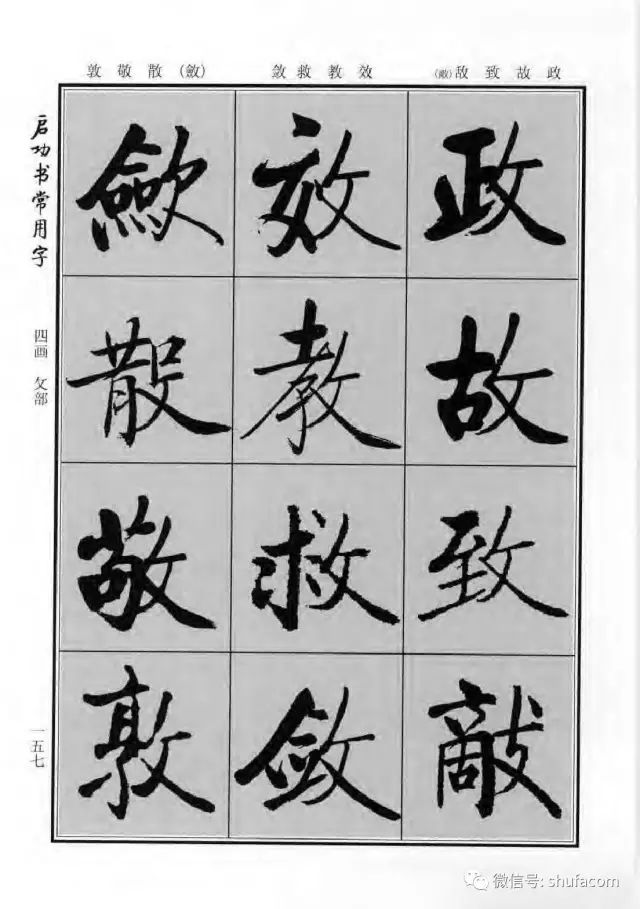 敦敬散(斂) 敛救教效 (敵)敌致故政
启功书常用字
四画 攵部
一五七
政故致敵
效教救敛
斂散敬敦
微信号: shufacom